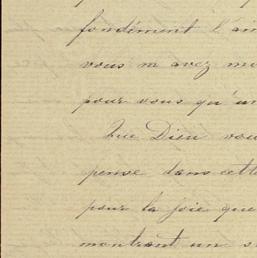 fondément l'ai
vous m avez mo
pour vous qu'un
Que Dieu vou
pense dans cette
pour la joie que
montrant un s